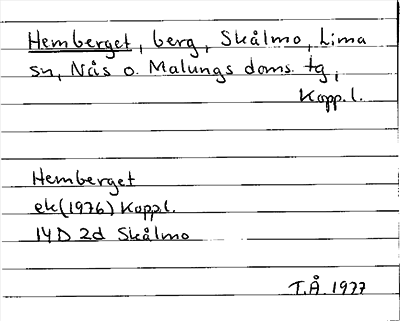 Hemberget, berg, Skålmo, Lima
sn, Nås o. Malungs doms. tg,
Kopp.l.
Hemberget
ek(1976) Kopp.l.
14D 2d Skålmo
T.Å. 1977